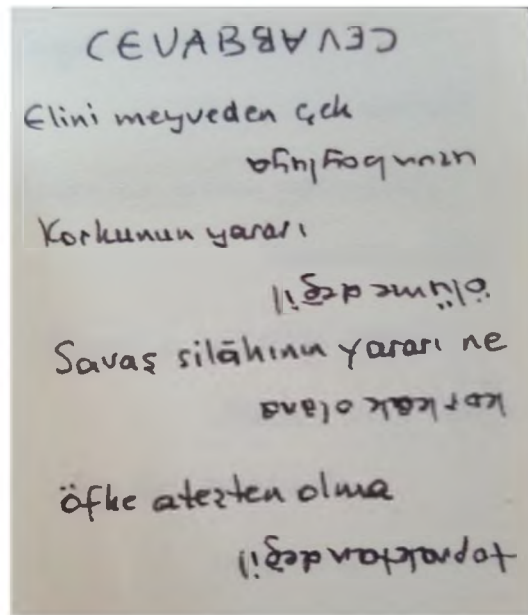 CEVABBAVEC
Elini meyveden çek
uzun boyluya
Korkunun yararı
ölüme değil
Savaş silâhının yararı ne
korkak olana
öfke ateşten olma
topraktan değil